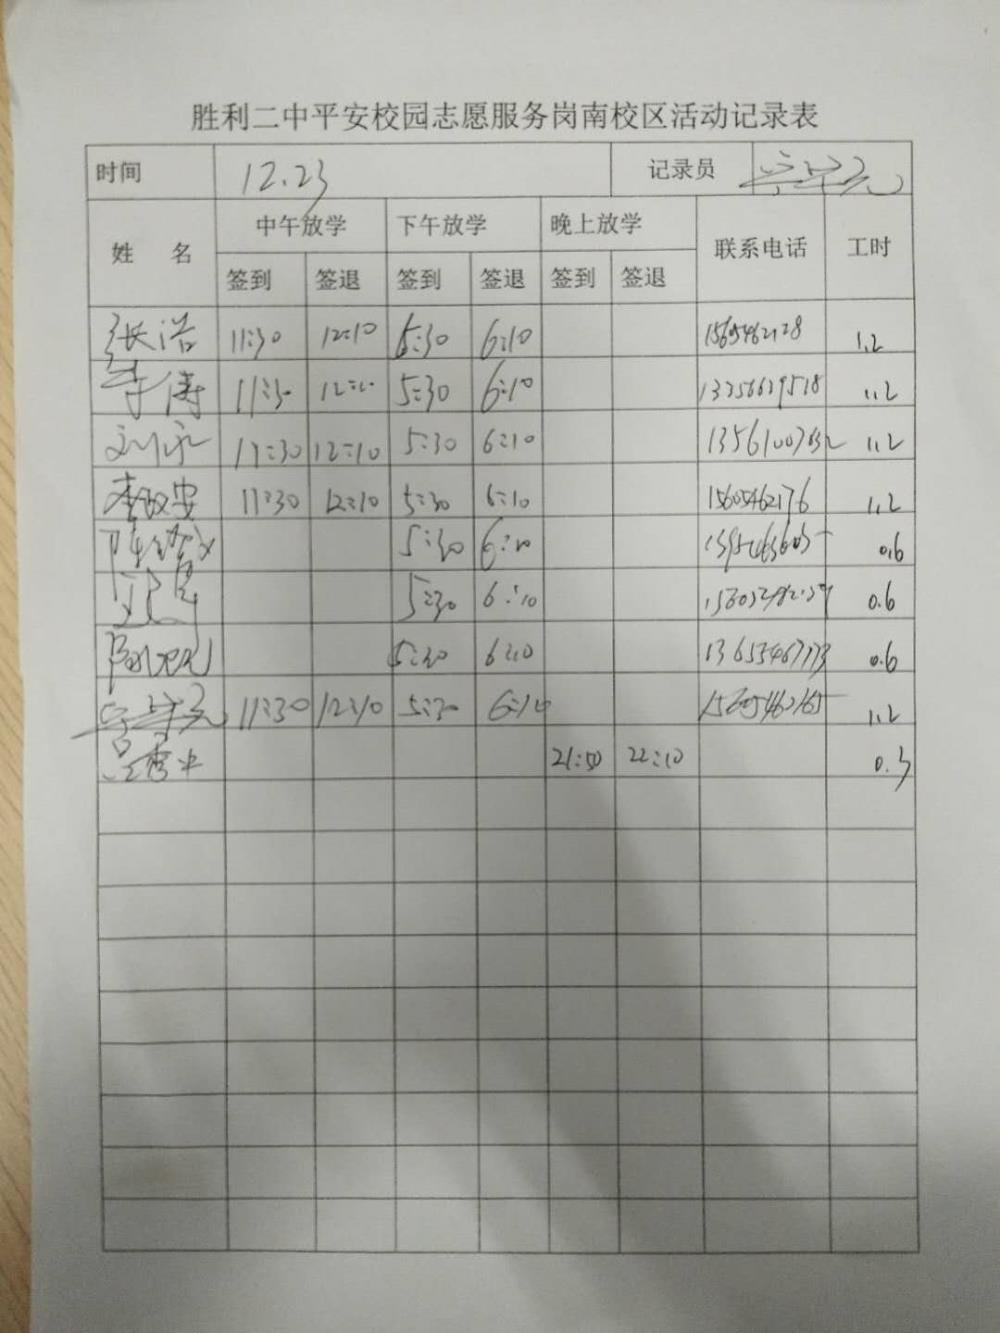 胜利二中平安校园志愿服务岗南校区活动记录表
时间 12.23 记录员
姓 名 中午放学 下午放学 晚上放学 联系电话 工时
签到 签退 签到 签退 签到 签退
张浩 11:30 12:10 5:30 6:10 15695462128 1.2
李涛 11:30 12:10 5:30 6:10 13256629518 1.2
刘永 11:30 12:10 5:30 6:10 1.2
李政安 11:30 12:10 5:30 6:10 15605462176 1.2
5:30 6:10 0.6
5:30 6:10 0.6
5:30 6:10 0.6
11:30 12:10 5:30 6:10 15605462165 1.2
吕秀业 21:50 22:10 0.3